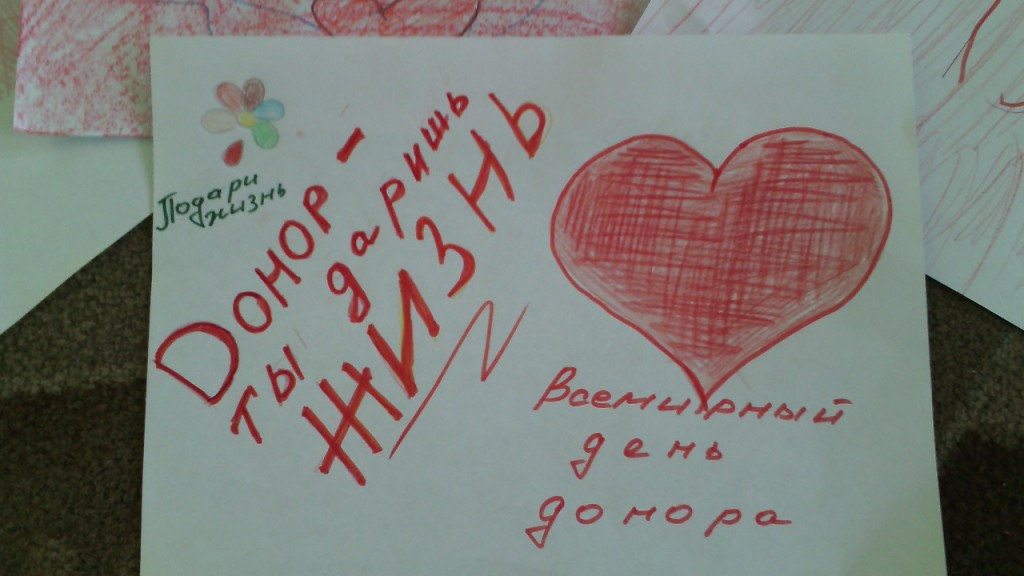 Подари
жизнь
Донор -
ты даришь
ЖИЗНЬ
Всемирный
день
донора